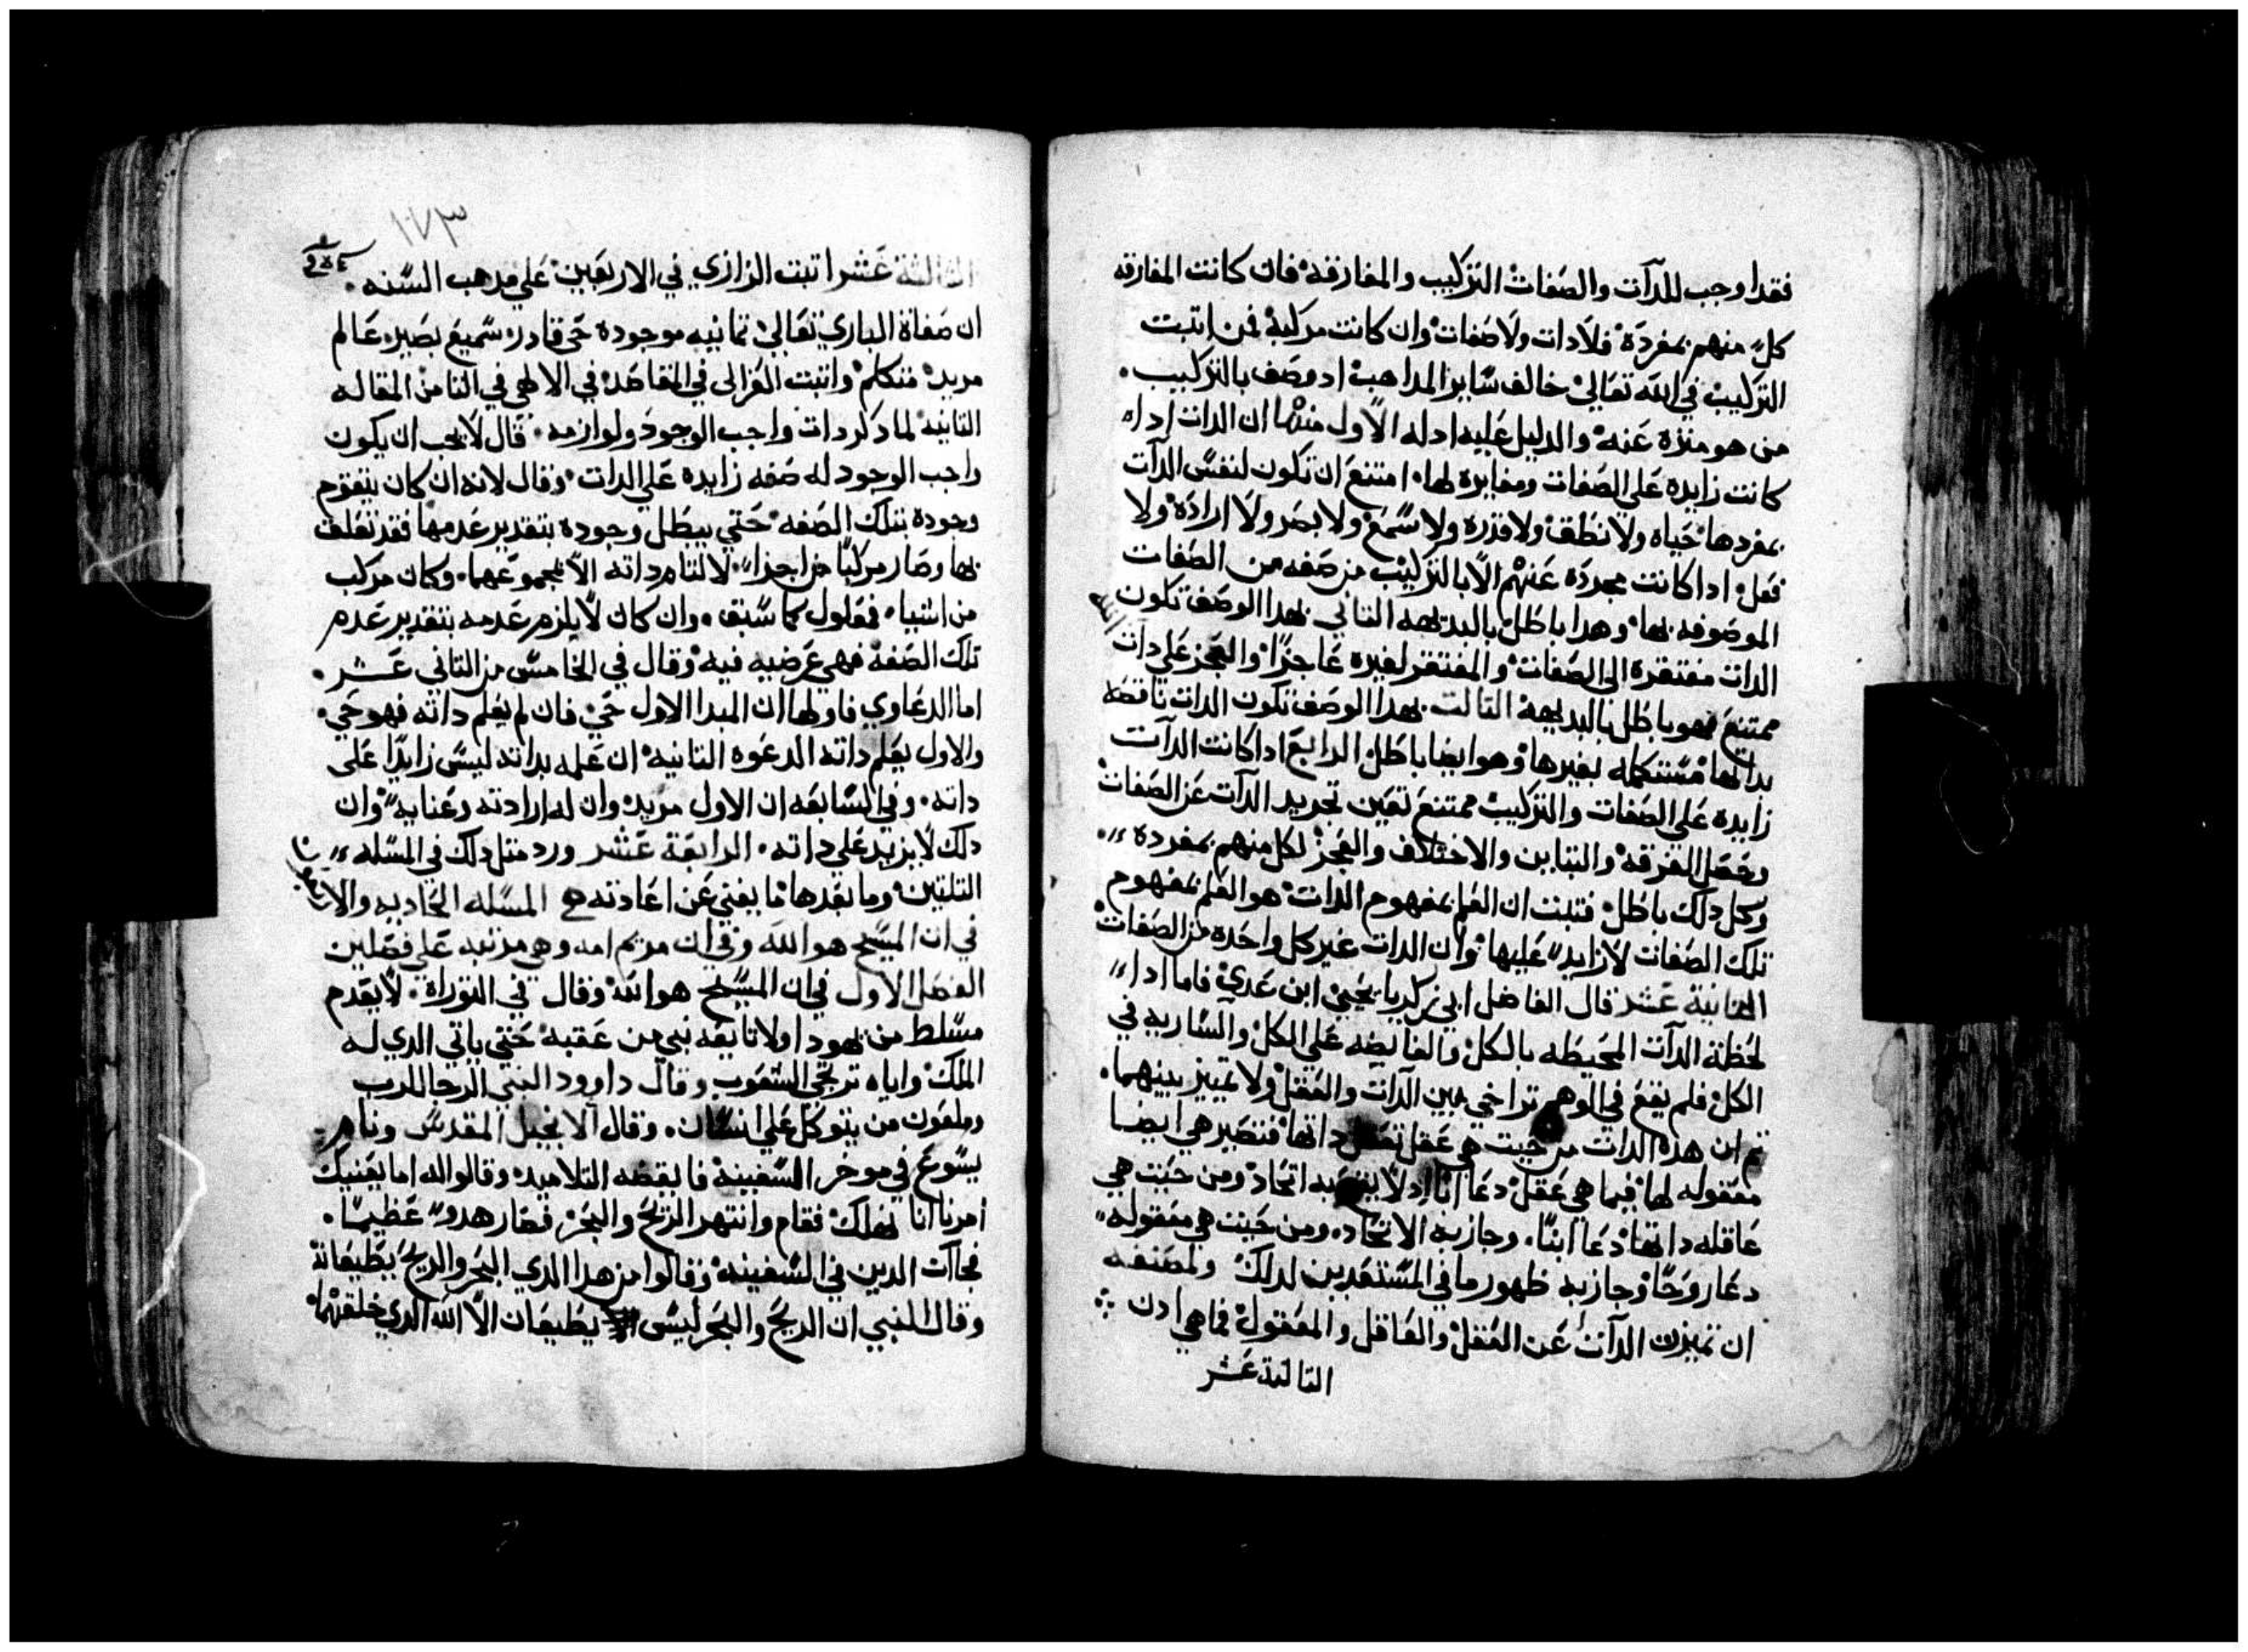 فقد اوجب للدآت والصفات التركيب والمفارقة فان كانت المفارقه
كل منهم بمفردة فلا دات ولا صفات وان كانت مركبة فمن اتبت
التركيب في الله تعالي خالف ساير المداهب اد وصف بالتركيب.
من هو منزه عنه والدليل عليه ادله الاول منها ان الدات ادا
كانت زايده علي الصفات ومغايره لها. امتنع ان تكون لنفس الدآت
بمفردها حياه ولا نطق ولا قدره ولا سمع ولا بصر ولا ارادة ولا
فعل ادا كانت مجرده عنهم الا بالتركيب من صفه من الصفات
الموصوفه بها وهدا باطل بالبديهه التاني بهدا الوصف تكون
الدات مفتقرة الي الصفات والمفتقر لغيره عاجزا والعجز علي دات الله
ممتنع فهو باطل بالبديهة التالت بهدا الوصف تكون الدات ناقصة
بداتها مستكمله بغيرها وهو ايضا باطل الرابع ادا كانت الدآت
زايده علي الصفات والتركيب ممتنع تعين تجريد الدآت عن الصفات
وحصل الفرقة والتباين والاختلاف والعجز لكل منهم بمفرده
وكل دلك باطل فتبت ان العلم بمفهوم الدات هو العلم بمفهوم
تلك الصفات لا زايد عليها وان الدات غير كل واحده من الصفات
التانية عشر قال الفاضل ابي زكريا يحيي ابن عدي فاما ادا
لحظة الدآت المحيطه بالكل والفايضه علي الكل والساريه في
الكل فلم يقع في الوهم تراخي بين الدآت والعقل ولا تمييز بينهما.
تم ان هده الدات من حيت هي عقل تعقل داتها فتصير هي ايضا
معقوله لها فبما هي عقل دعا ابا اد لا يتم به اتحاد ومن حيت هي
عاقله داتها دعا ابنا. وجاز به الاتحاد. ومن حيت هي معقوله
دعا روحا وجاز به ظهور ما في المستعدين لدلك ولمصنفه
ان تميزت الدآت عن العقل والعاقل والمعقول فما هي ادن
التالتة عشر
١٧٣
التالتة عشر اتبت الرازي في الاربعين علي مدهب السنه.
ان صفاة الباري تعالي تمانيه موجوده حي قادر سميع بصير عالم
مريد متكلم واتبت الغزالي في المقاصد في الالهي في التامن المقاله
التانيه لما دكر دات واجب الوجود ولوازمه. قال لا يجب ان يكون
واجب الوجود له صفه زايده علي الدات. وقال لانه ان كان يتقوم
وجودة بتلك الصفه حتي يبطل وجوده بتقدير عدمها فقد تعلق
بها وصار مركبا من اجزا لا تلتام داته الا بمجموعهما. وكان مركب
من اشيا. فمعلول كما سبق. وان كان لا يلزم عدمه بتقدير عدم
تلك الصفة فهي عرضيه فيه وقال في الخامس من التاني عشر.
اما الدعاوي فاولها ان المبدا الاول حي فان لم يعلم داته فهو حي.
والاول يعلم داته الدعوه التانيه ان علمه بداته ليس زايدا علي
داته. وفي السابعه ان الاول مريد وان له ارادته وعنايه وان
دلك لا يزيد علي داته. الرابعة عشر ورد متل دلك في المسله
التلتين وما بعدها ما يغني عن اعادته المسله الحاديه والاربعون
في ان المسيح هو الله وفي ان مريم امه وهي مرتبه علي فصلين
الفصل الاول في ان المسيح هو الله وقال في التوراة. لا يعدم
مسلط من يهودا ولا تابعه نبي من عقبه حتي ياتي الدي له
الملك واياه ترتجي الشعوب وقال داوود النبي الرجا للرب
وملعون من يتوكل علي انسان. وقال الانجيل المقدس ونام
يسوع في موخر السفينة فايقظه التلاميد وقالوا له اما يعنيك
امرنا انا نهلك فقام وانتهر الريح والبحر فصار هدو عظيما.
فجاآت الدين في السفينه وقالوا من هدا الدي البحر والريح يطيعانة
وقال النبي ان الريح والبحر ليس يطيعان الا الله الدي خلقهما